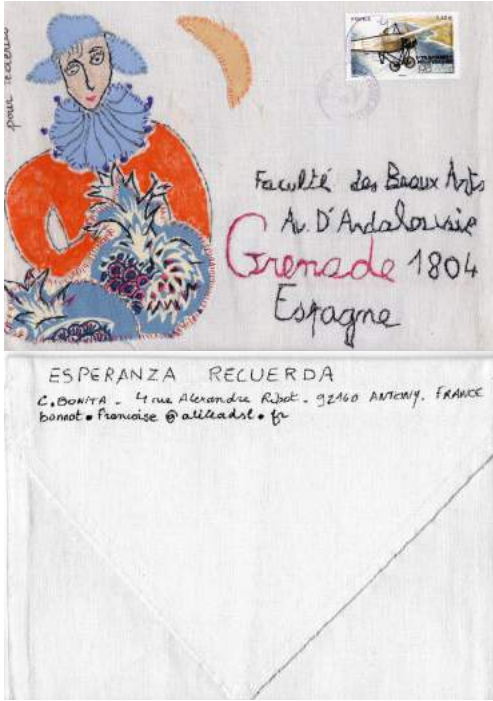 pour Federico
FRANCE
Faculté des Beaux Arts
Av. D'Andalousie
Grenade 1804
Espagne
ESPERANZA RECUERDA
C. BONITA - 4 rue Alexandre Ribot - 92160 ANTONY. FRANCE
bonnot • Francoise @ aliceadsl • fr